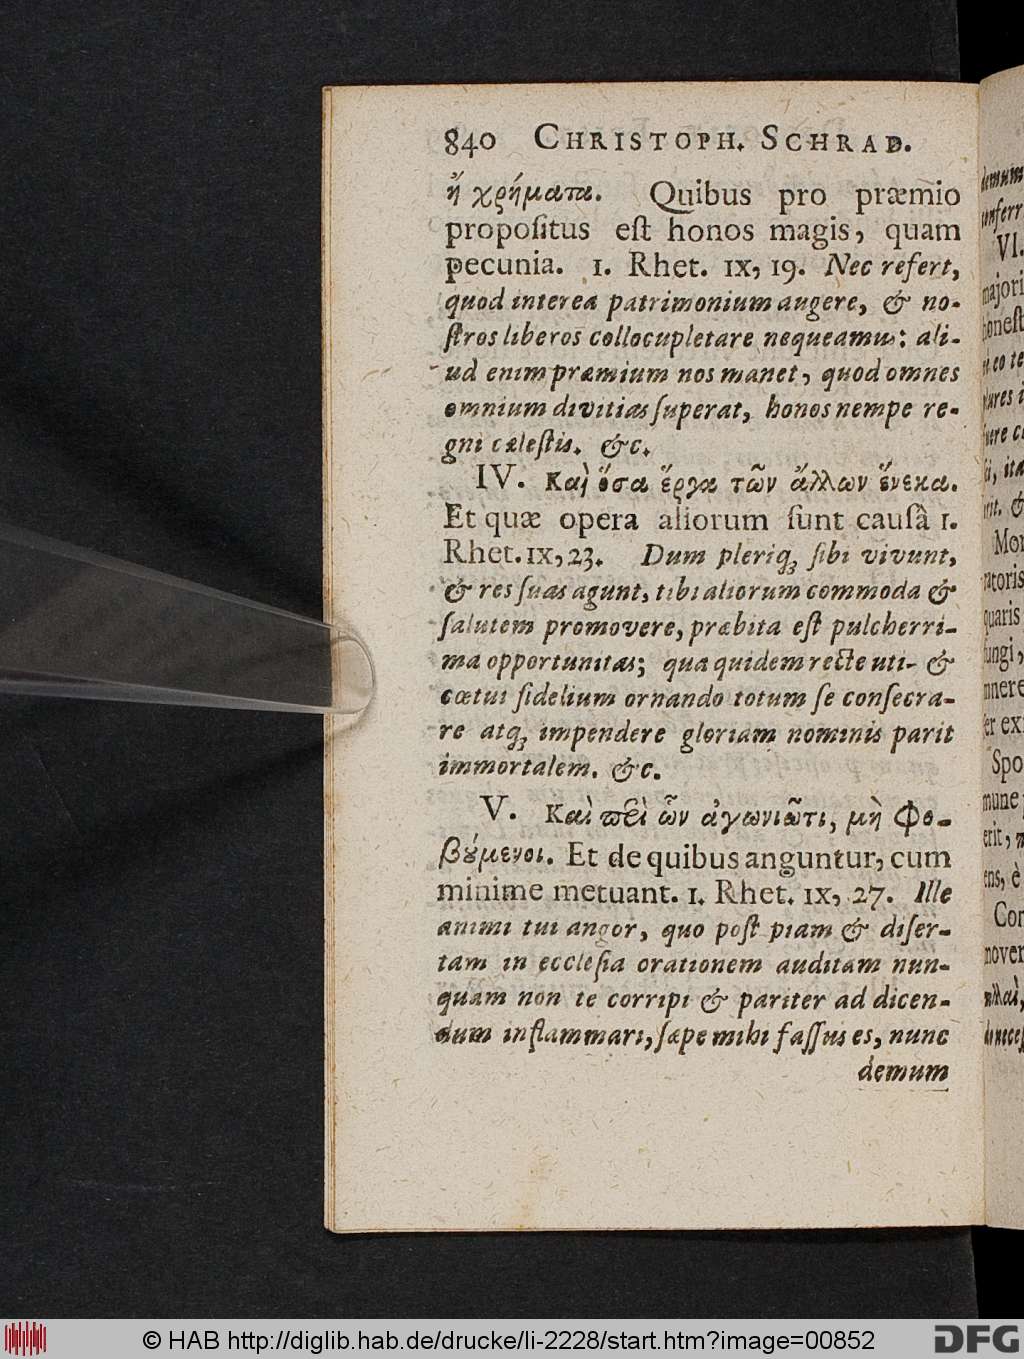 840 CHRISTOPH. SCHRAD.
ἢ χρήματα. Quibus pro præmio
propoſitus eſt honos magis, quam
pecunia. 1. Rhet. IX, 19. Nec refert,
quod interea patrimonium augere, & no-
ſtros liberos collocupletare nequeamus: ali-
ud enim præmium nos manet, quod omnes
omnium divitias ſuperat, honos nempe re-
gni cæleſtis. &c.
IV. Καὶ ὅσα ἔργα τῶν ἄλλων ἕνεκα.
Et quæ opera aliorum ſunt cauſâ 1.
Rhet. IX, 23. Dum pleriqꝫ ſibi vivunt,
& res ſuas agunt, tibi aliorum commoda &
ſalutem promovere, præbita eſt pulcherri-
ma opportunitas; qua quidem recte uti- &
cœtui fidelium ornando totum ſe conſecra-
re atqꝫ impendere gloriam nominis parit
immortalem. &c.
V. Καὶ περὶ ὧν ἀγωνιῶτι, μὴ φο-
βύμενοι. Et de quibus anguntur, cum
minime metuant. 1. Rhet. IX, 27. Ille
animi tui angor, quo poſt piam & diſer-
tam in eccleſia orationem auditam nun-
quam non te corripi & pariter ad dicen-
dum inflammari, ſæpe mihi faſſus es, nunc
demum
demum
VI.
majori
Mor
ratoris
quaris
fungi,
Spo
mune
erit,
ens, è
© HAB http://diglib.hab.de/drucke/li-2228/start.htm?image=00852
DFG